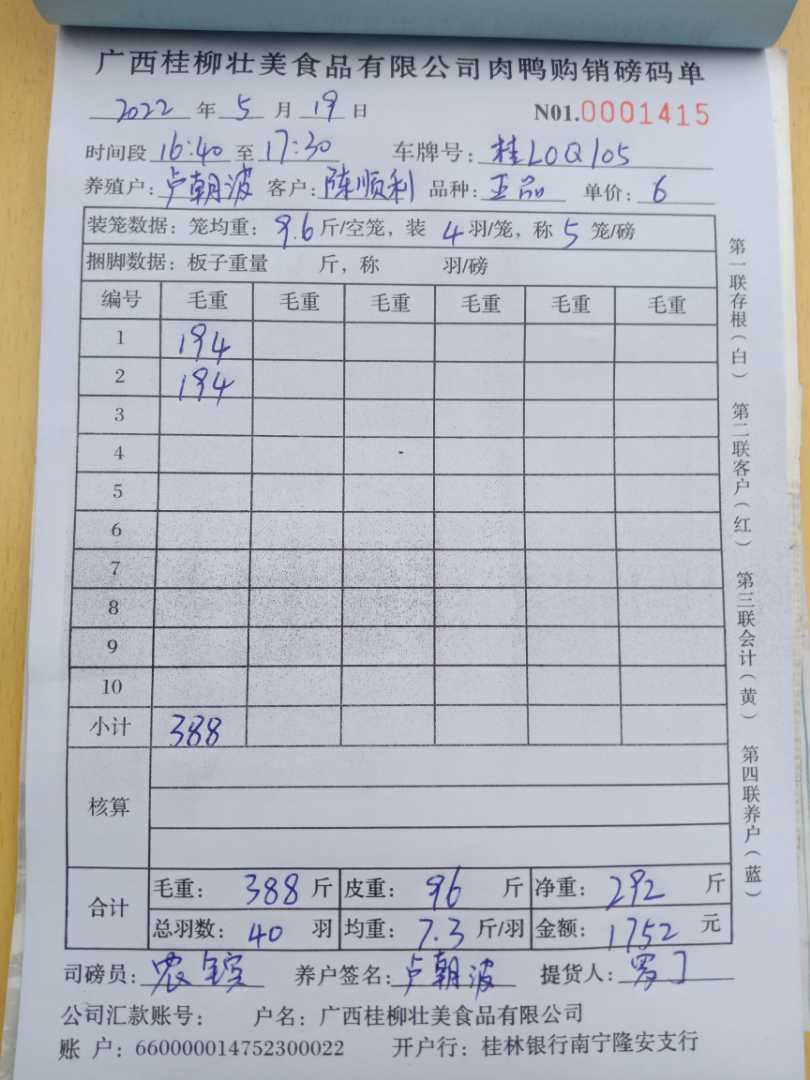 广西桂柳壮美食品有限公司肉鸭购销磅码单
2022 年 5 月 19 日 N01.0001415
时间段 16:40 至 17:30 车牌号: 桂L0Q105
养殖户: 卢朝波 客户: 陈顺利 品种: 正品 单价: 6
装笼数据: 笼均重: 9.6 斤/空笼, 装 4 羽/笼, 称 5 笼/磅
捆脚数据: 板子重量 斤, 称 羽/磅
编号 毛重 毛重 毛重 毛重 毛重 毛重
1 194
2 194
3
4
5
6
7
8
9
10
小计 388
核算
合计 毛重: 388 斤 皮重: 96 斤 净重: 292 斤
总羽数: 40 羽 均重: 7.3 斤/羽 金额: 1752 元
司磅员: 农 养户签名: 卢朝波 提货人: 罗
公司汇款账号: 户名: 广西桂柳壮美食品有限公司
账 户: 660000014752300022 开户行: 桂林银行南宁隆安支行
第一联存根(白) 第二联客户(红) 第三联会计(黄) 第四联养户(蓝)